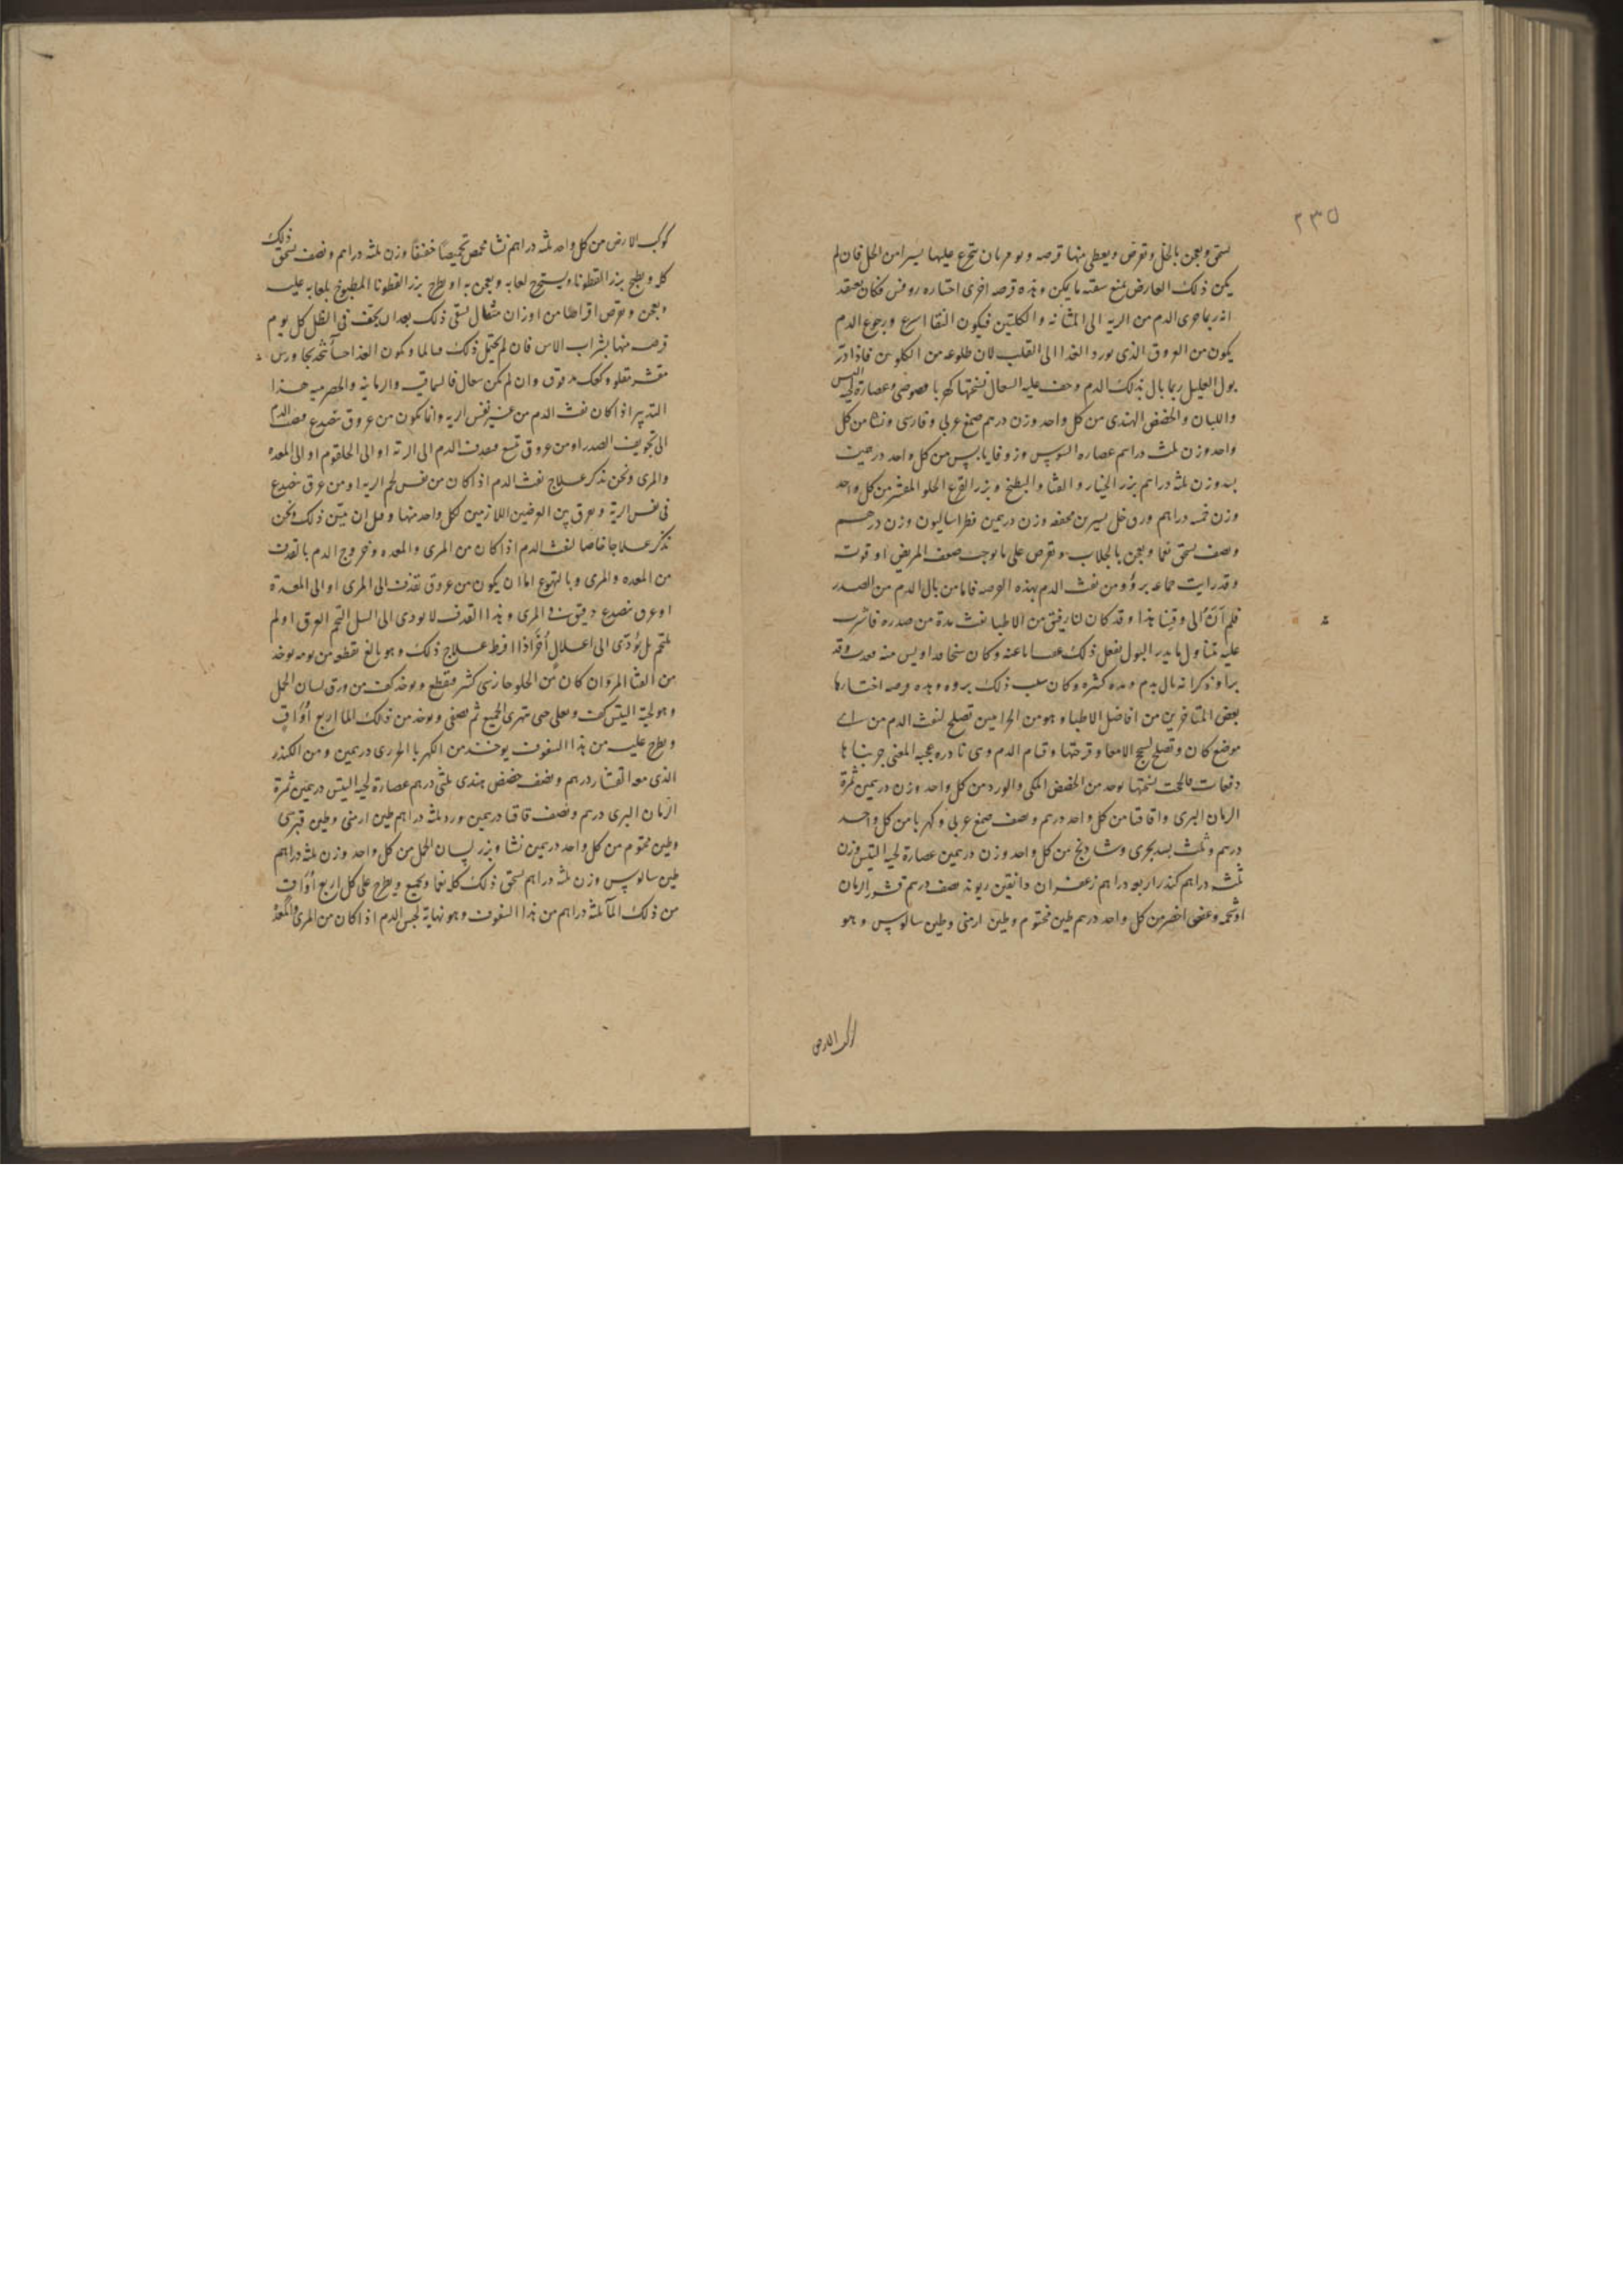 ٢٣٥
يسحق ويعجن بالخل ويقرص ويعطى منها قرصه ويومر بان يتجرع عليها يسيرا من الخل فان لم
يكن ذلك العارض يمنع سقته ما يكن وهذه قرصه اخرى اختاره روفس فكان يعتقد
انه ربما جرى الدم من الريه الى المثانه والكليتين فيكون النقا اسرع ورجوع الدم
يكون من العروق الذى يورد الغذا الى القلب لان طلوعه من الكلوتين فاذا ادر
بول العليل ربما بال بذلك الدم وخف عليه السعال نسختها كهربا فصوص وعصارة لحية التيس
واللبان والحضض الهندى من كل واحد وزن درهم صمغ عربى وفارسى ونشا من كل
واحد وزن ثلث دراهم عصاره السوس وزوفا يابس من كل واحد درهمين
بسد وزن ثلثه دراهم بزر الخيار والقثا والبطيخ وبزر القرع الحلو المقشر من كل واحد
وزن خمسه دراهم ورق خل يسير من مجففه وزن درهمين فطراساليون وزن درهم
ونصف يسحق نعما ويعجن بالجلاب ويقرص على ما يوجب ضعف المريض او قوته
وقد رايت جماعه برؤو من نفث الدم بهذه القرصه فاما من بال الدم من الصدر
فلم ار الى وقتنا هذا وقد كان لنا رفيق من الاطبا نفث مدة من صدره فاشرت
عليه بتناول ما يدر البول ففعل ذلك وغاب اياما عنه وكان شيخا فداويس منه وقد
برا وذكر انه بال بدم ومده كثيره وكان سبب ذلك بروه وهذه قرصه اختارها
بعض المتاخرين من افاضل الاطباء وهو من الحرامين تصلح لنفث الدم من اى
موضع كان وتصلح لسحج الامعا وقرحتها وقيام الدم وهى نادره عجيبه المعنى جربناها
دفعات فانجحت نسختها يوخذ من الحضض المكى والورد من كل واحد وزن درهمين ثمرة
الرمان البرى واقاقيا من كل واحد درهم ونصف صمغ عربى وكهربا من كل واحد
درهم وثلث بسد بحرى وشادنج من كل واحد وزن درهمين عصارة لحية التيس وزن
ثلثه دراهم كندر اربعه دراهم زعفران دانقين ريوند نصف درهم قشور الرمان
او شحمه وعفص اخضر من كل واحد درهم طين مختوم وطين ارمنى وطين سالوس وهو
كوكب الارض
كوكب الارض من كل واحد ثلثه دراهم نشا محمص تحميصا خفيفا وزن ثلثه دراهم ونصف يسحق ذلك
كله ويطبخ بزر القطونا ويستخرج لعابه ويعجن به او يطرح بزر القطونا المطبوخ بلعابه عليه
ويعجن ويقرص اقراطا من اوزان مثقال يسقى ذلك بعد ان يجفف فى الظل كل يوم
قرصه منها بشراب الاس فان لم يحتمل ذلك فبالما ويكون الغذا حسا يتخذ بجاورس
مقشر مقلو وكعك مدقوق وان لم يكن سعال فالسماقيه والرمانيه والحصرميه هذا
التدبير اذا كان نفث الدم من غير نفس الريه وانما يكون من عروق تنصدع فينصب الدم
الى تجويف الصدر او من عروق تتسع فيقذف الدم الى الرئة او الى الحلقوم او الى المعده
والمرى ونحن نذكر علاج نفث الدم اذا كان من نفس لحم الريه او من عرق تنصدع
فى نفس الريه ونفرق بين العرضين اللازمين لكل واحد منهما وقبل ان نبين ذلك ونحن
نذكر علاجا خاصا لنفث الدم اذا كان من المرى والمعده وخروج الدم بالقذف
من المعده والمرى وبالتهوع اما ان يكون من عروق تقذف الى المرى او الى المعدة
او عرق تنصدع دقيق فى المرى وهذا القذف لا يودى الى السل التحم العرق او لم
يلتحم بل يؤدى الى اعلال أخر اذا افرط علاج ذلك وهو بالغ يقطعه من يومه يوخذ
من القثا المر وان كان من الحلو جاز شى كثير فيقطع ويوخذ كف من ورق لسان الحمل
وهو لحية التيس كف ويغلى حتى يتهرى الجميع ثم يصفى ويوخذ من ذلك الما اربع أواق
ويطرح عليه من هذا السفوف يوخذ من الكهربا الحررى درهمين ومن الكندر
الذى معه القشار درهم ونصف حضض هندى ثلثى درهم عصارة لحية التيس درهمين ثمرة
الرمان البرى درهم ونصف قاقيا درهمين ورد ثلثه دراهم طين ارمنى وطين قبرسى
وطين مختوم من كل واحد درهمين نشا وبزر لسان الحمل من كل واحد وزن ثلثه دراهم
طين سالوس وزن ثلثه دراهم يسحق ذلك كله نعما ويجمع ويطرح على كل اربع أواق
من ذلك المآ ثلثه دراهم من هذا السفوف وهو نهاية لحبس الدم اذا كان من المرى والمعدة